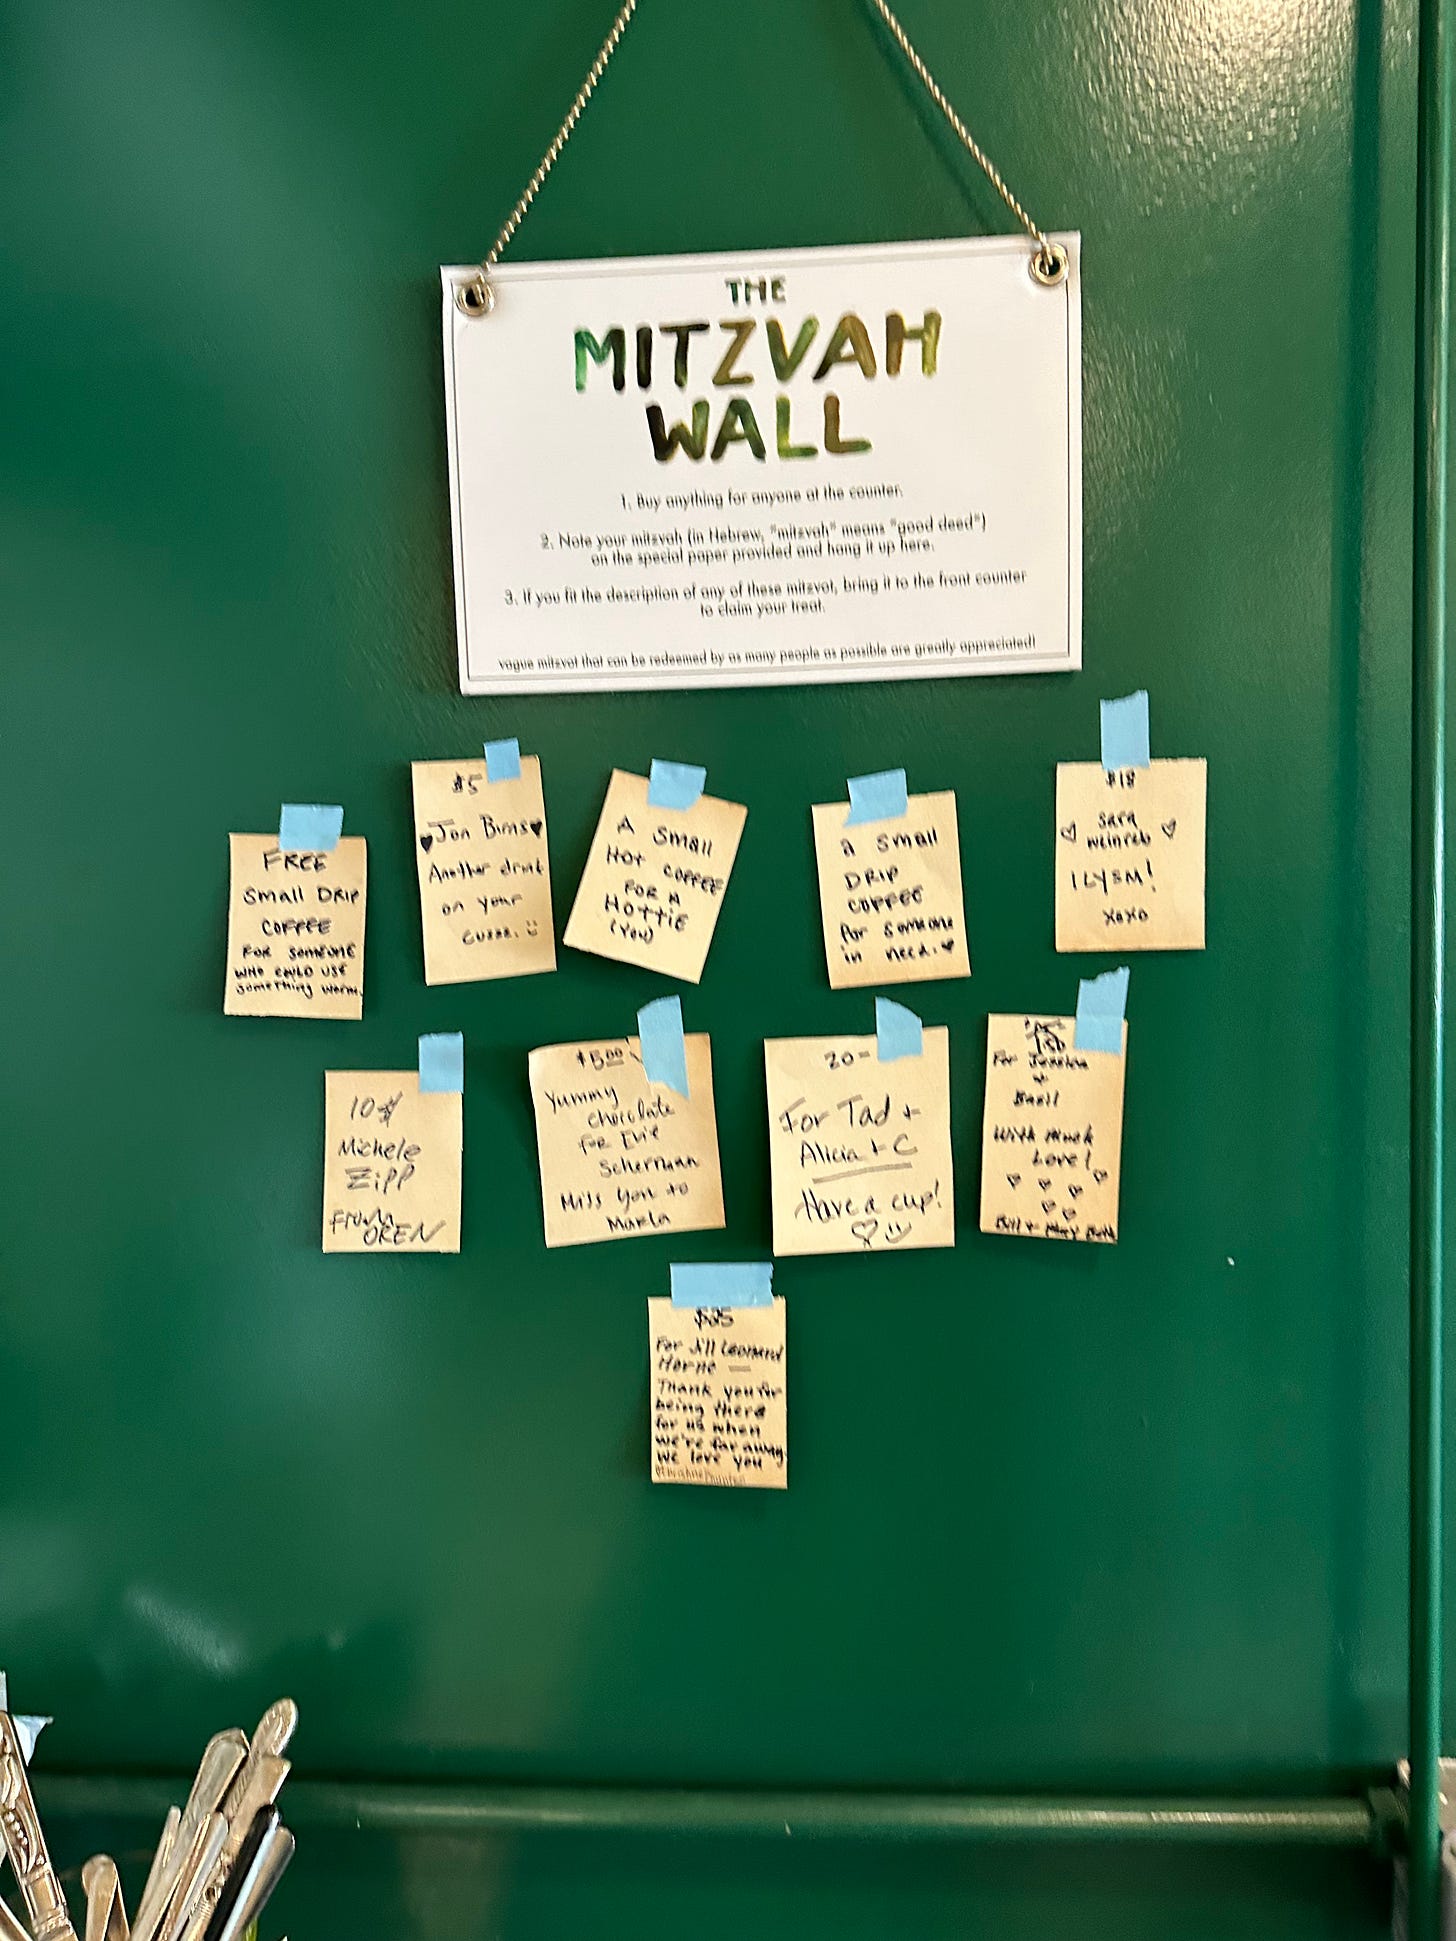 THE
MITZVAH
WALL
1. Buy anything for anyone at the counter.
2. Note your mitzvah (in Hebrew, "mitzvah" means "good deed")
on the special paper provided and hang it up here.
3. If you fit the description of any of these mitzvot, bring it to the front counter
to claim your treat.
vague mitzvot that can be redeemed by as many people as possible are greatly appreciated!
FREE
Small DRIP
COFFEE
FOR SOMEONE
WHO COULD USE
something warm.
$5
Jon Birns
Another drink
on your
A Small
Hot COFFEE
FOR A
HOTTIE
(You)
a small
DRIP
COFFEE
for someone
in need.
$18
Sara
Weinreb
ILYSM!
xoxo
10$
Michele
Zipp
From
OREN
$5.00
Yummy
Chocolate
For Evie
Scherman
Miss you to
Marla
20-
For Tad +
Alicia + C
Have a cup!
For Jessica
+
Basil
With much
Love!
Bill +
$25
For Jill Leonard
Horne
Thank you for
being there
for us when
we're far away.
We love you